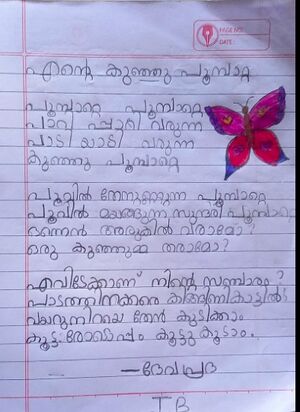 PAGE NO:
DATE:
എന്റെ കുഞ്ഞു പൂമ്പാറ്റ
പൂമ്പാറ്റെ പൂമ്പാറ്റെ
പാറി പ്പാറി വരുന്ന
പാടി യാടി വരുന്ന
കുഞ്ഞു പൂമ്പാറ്റെ
പൂവിൽ തേനുണ്ണുന്ന പൂമ്പാറ്റെ
പൂവിൽ മയങ്ങുന്ന സുന്ദരി പൂമ്പാറ്റെ
എന്നെൻ അരുകിൽ വരാമോ?
ഒരു കുഞ്ഞുമ്മ തരാമോ?
എവിടേക്കാണ് നിന്റെ സഞ്ചാരം?
പാടത്തിനക്കരെ കിങ്ങിണികാട്ടിൽ
വയറുനിറയെ തേൻ കുടിക്കാം
കൂട്ടരോടൊപ്പം കൂട്ടു കൂടാം.
—ദേവപ്രദ
I B